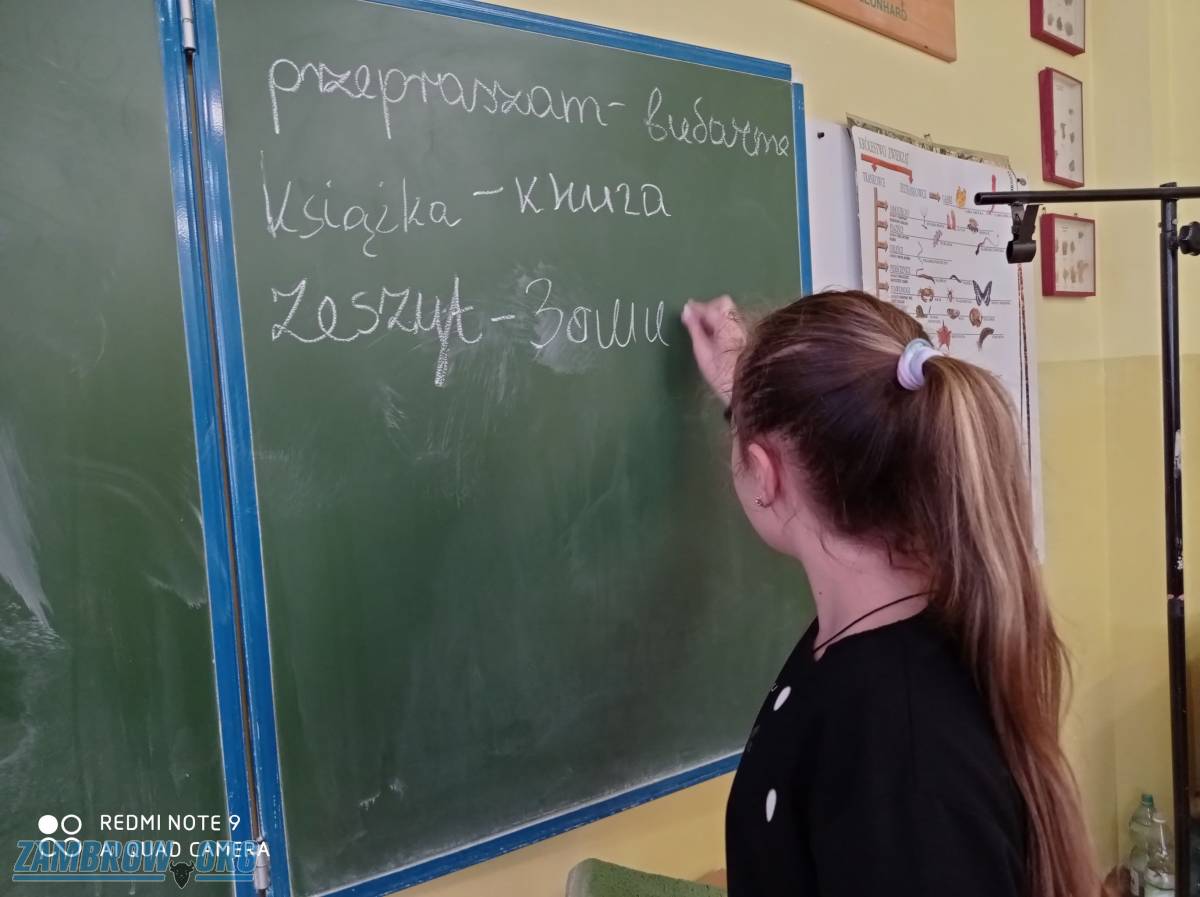 przepraszam - вибачте
książka - книга
zeszyt - Зоши
KRÓLESTWO ZWIERZĄT
TKANKOWCE
BEZTKANKOWCE
GĄBKI
REDMI NOTE 9
AI QUAD CAMERA
ZAMBROW.ORG